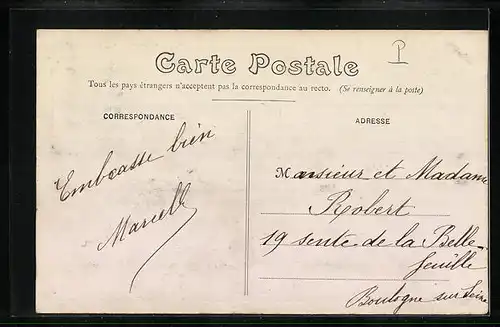 P
Carte Postale
Tous les pays étrangers n'acceptent pas la correspondance au recto. (Se renseigner à la poste)
CORRESPONDANCE
Embrasse bien
Marcelle
ADRESSE
Monsieur et Madame
Robert
19 sente de la Belle-
feuille
Boulogne sur Seine